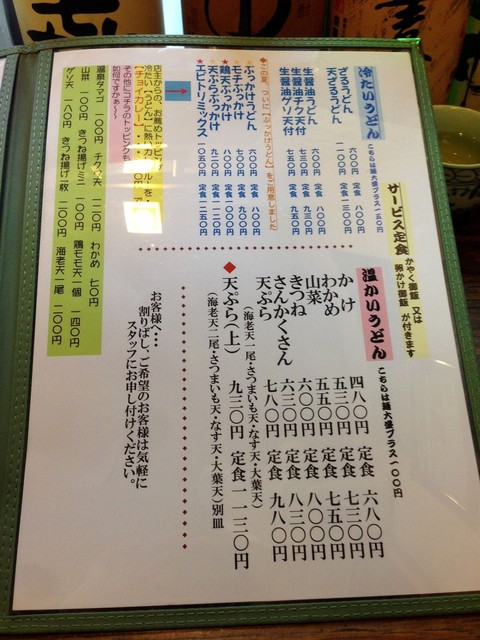 サービス定食 かやく御飯 又は
卵かけ御飯 が付きます
冷たいうどん こちらは麺大盛プラス一五〇円
ざるうどん 六〇〇円 定食 八〇〇円
天ざるうどん 一一〇〇円 定食 一三〇〇円
生醤油うどん 六〇〇円 定食 八〇〇円
生醤油チク天付 七三〇円 定食 九三〇円
生醤油ゲソ天付 七五〇円 定食 九五〇円
◆この夏、ついに【ぶっかけうどん】をご用意しました
ぶっかけうどん 六〇〇円 定食 八〇〇円
★モチぶっかけ
★鶏天ぶっかけ 八〇〇円 定食 一〇〇〇円
天ぷらぶっかけ 九二〇円
★エビトリミックス 一〇五〇円 定食 一二五〇円
店主からの、お薦めトッピング
冷たい【うどん】に熱いカレールーを・
【チョイカレー】・
その他にコチラのトッピングも
如何ですかぁ～～
温泉タマゴ 一〇〇円 チクワ天 一二〇円 わかめ 七〇円
山菜 一〇〇円 きつね揚げミニ 一〇〇円 鶏モモ天一個 一四〇円
ゲソ天 一八〇円 きつね揚げ一枚 二〇〇円 海老天一尾 二〇〇円
温かいうどん こちらは麺大盛プラス一〇〇円
かけ 四八〇円 定食 六八〇円
わかめ 五三〇円 定食 七三〇円
山菜 五五〇円 定食 七五〇円
きつね 六〇〇円 定食 八〇〇円
さんかくさん 六三〇円 定食 八三〇円
天ぷら 七八〇円 定食 九八〇円
(海老天一尾・さつまいも天・なす天・大葉天)
◆天ぷら(上) 九三〇円 定食 一一三〇円
(海老天二尾・さつまいも天・なす天・大葉天)別皿
お客様へ・・・
割りばし、ご希望のお客様は気軽に
スタッフにお申し付けください。